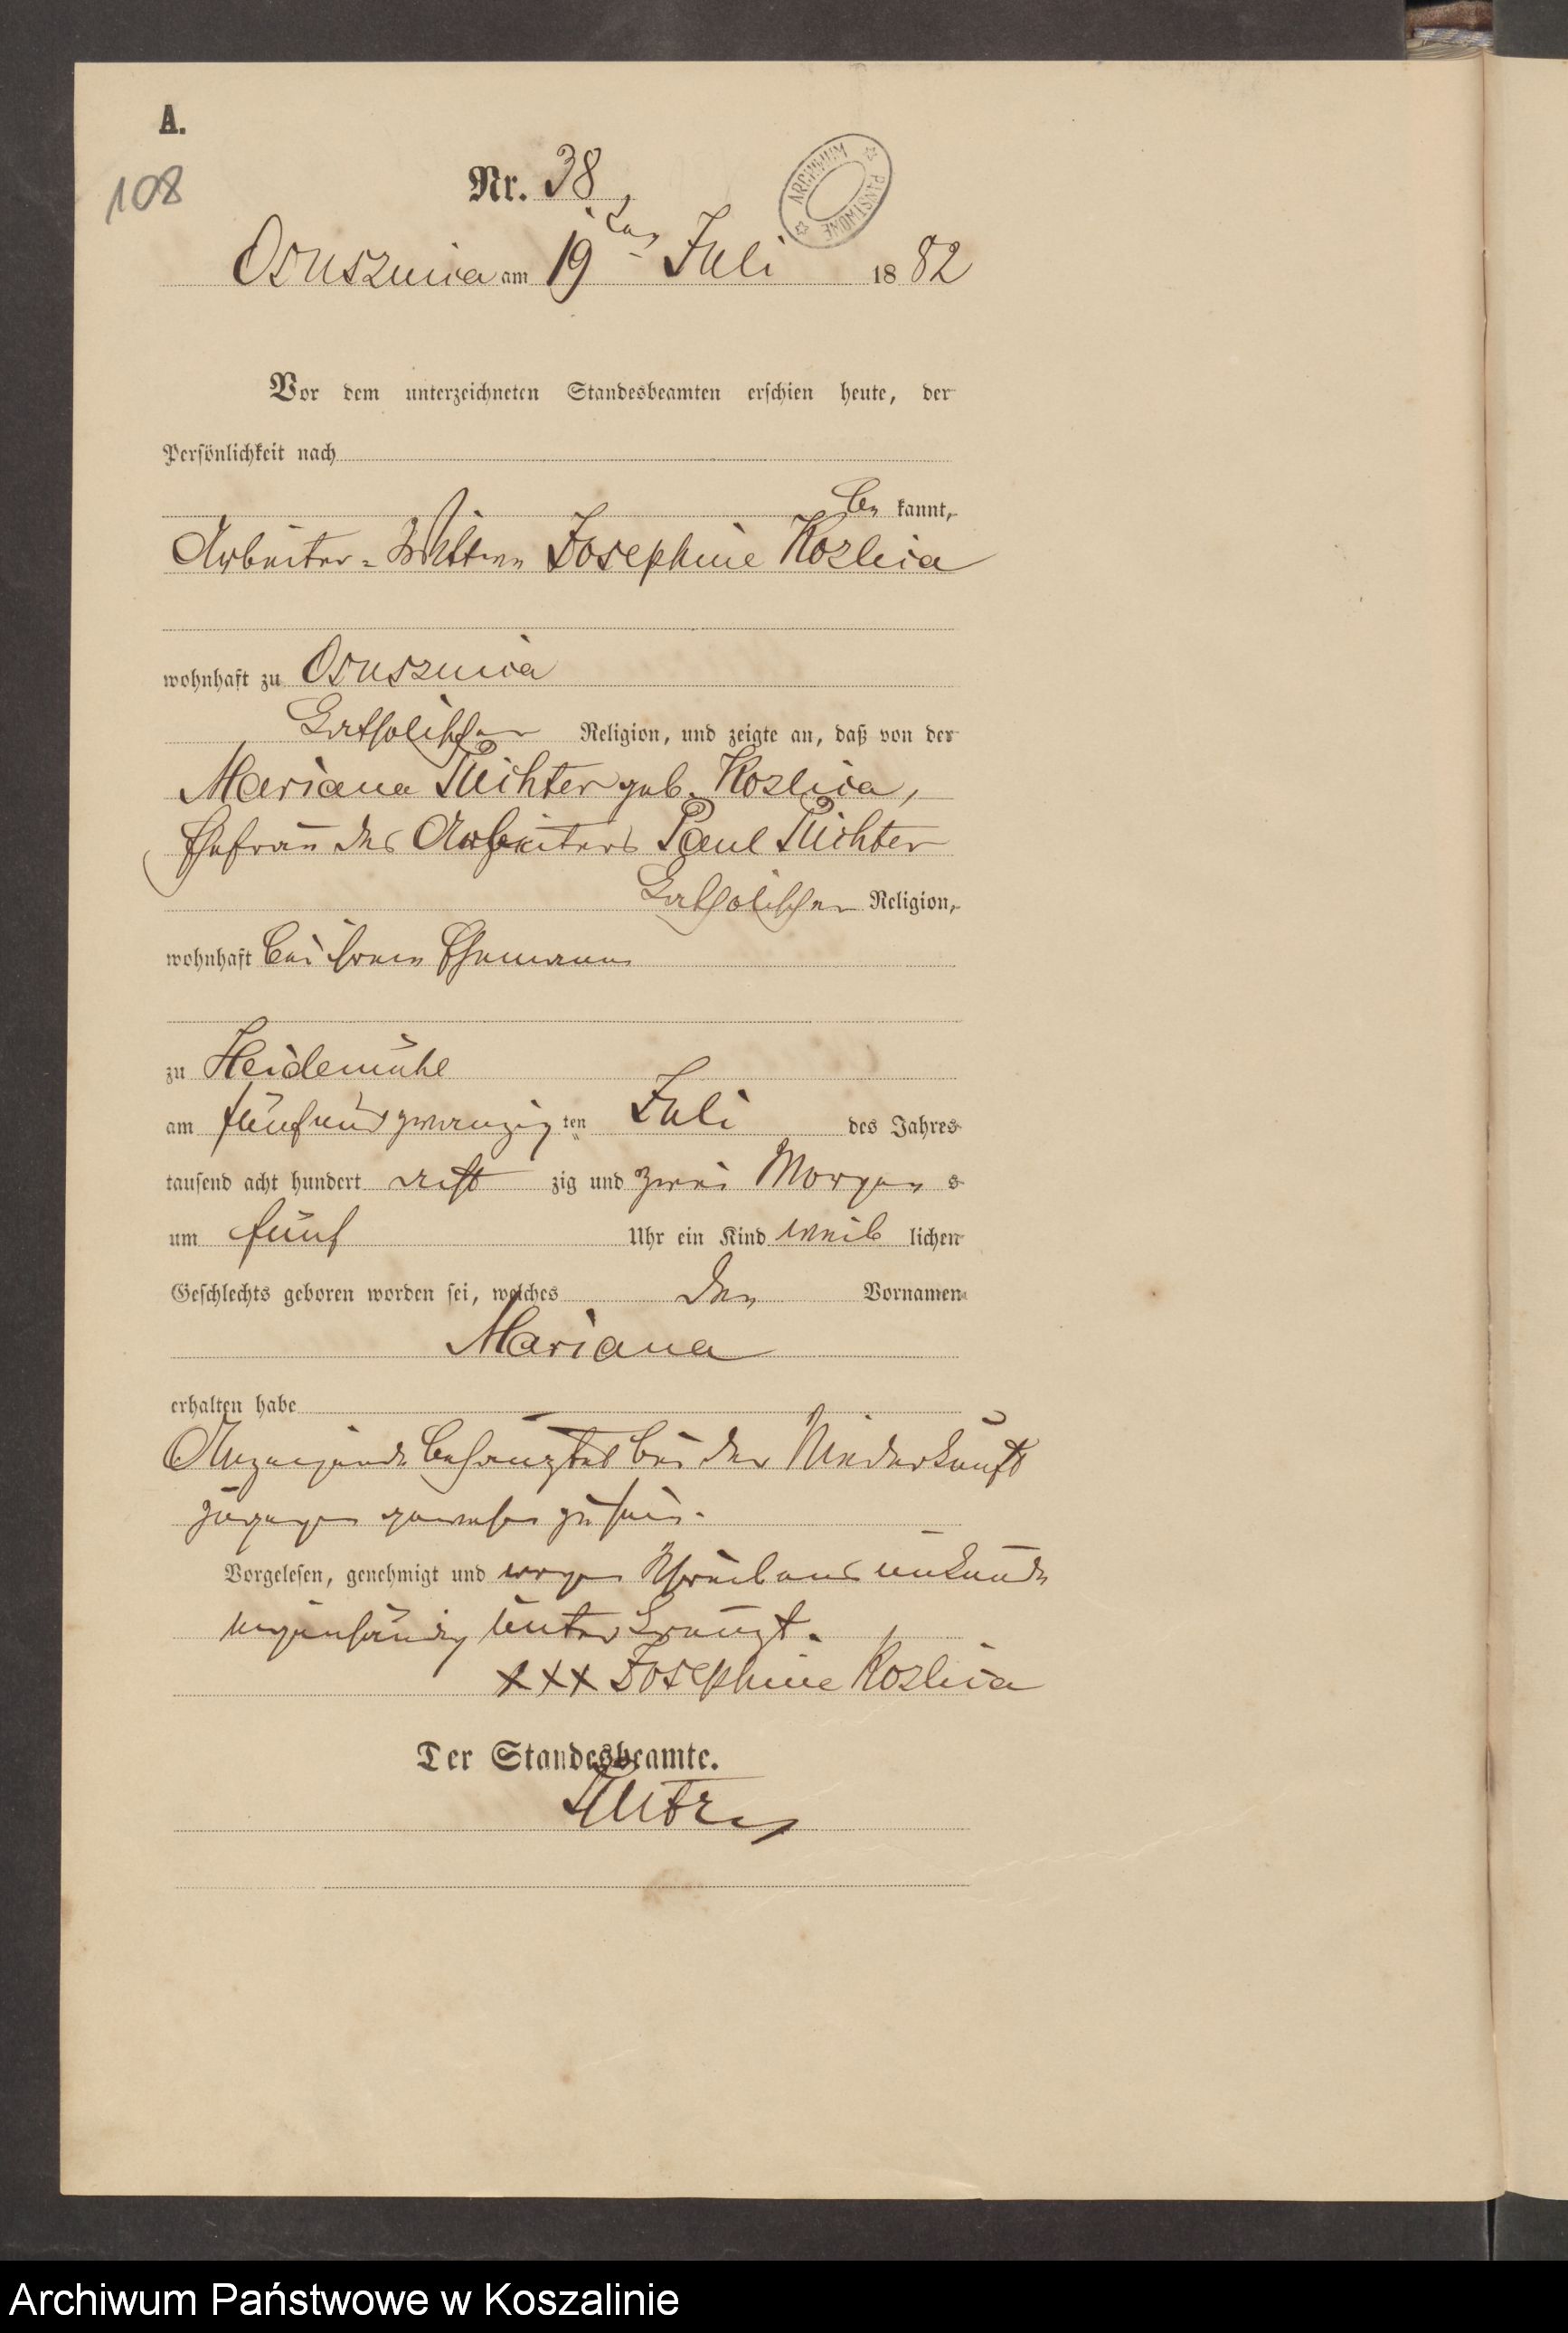 A.
108
Nr. 38
ARCHIWUM PAŃSTWOWE
Osusznica am 19ten Juli 1882
Vor dem unterzeichneten Standesbeamten erschien heute, der
Persönlichkeit nach
be kannt,
Arbeiter-Wittwe Josephine Kozlica
wohnhaft zu Osusznica
katholischer Religion, und zeigte an, daß von der
Mariana Richter geb. Kozlica,
Ehefrau des Arbeiters Paul Richter
katholischer Religion,
wohnhaft bei ihrem Ehemann
zu Heidemühl
am fünfundzwanzig ten Juli des Jahres
tausend acht hundert acht zig und zwei Morgen s
um fünf Uhr ein Kind weib lichen
Geschlechts geboren worden sei, welches den Vornamen
Mariana
erhalten habe
Anzeigende bezeugte bei der Niederkunft
zugegen gewesen zu sein.
Vorgelesen, genehmigt und wegen Schreibens unkunde
eigenhändig unterkreuzt.
XXX Josephine Kozlica
Der Standesbeamte.
Archiwum Państwowe w Koszalinie